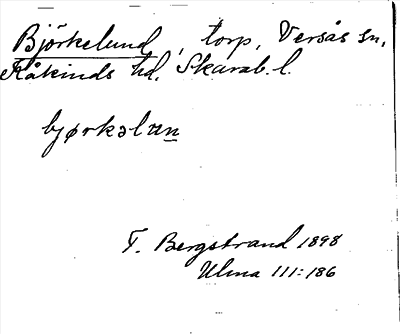 Björkelund, torp, Versås sn,
Kåkinds hd, Skarab. l.
bjørkəlun
T. Bergstrand 1898
Ulma 111:186